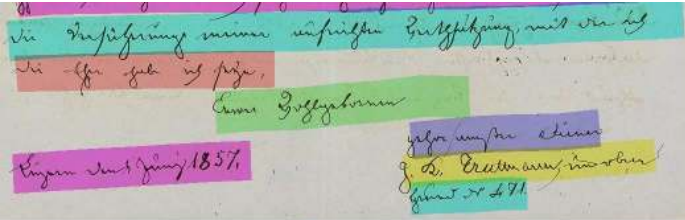 die Versicherung meiner aufrichten Werthschätzung, mit der ich
die Ehre habe ich seyn,
Euer Wohlgeboren
gehorsamster Diener
Luzern den 1 Juny 1857.
J. K. Trutmann, im obern
Grund No 471.